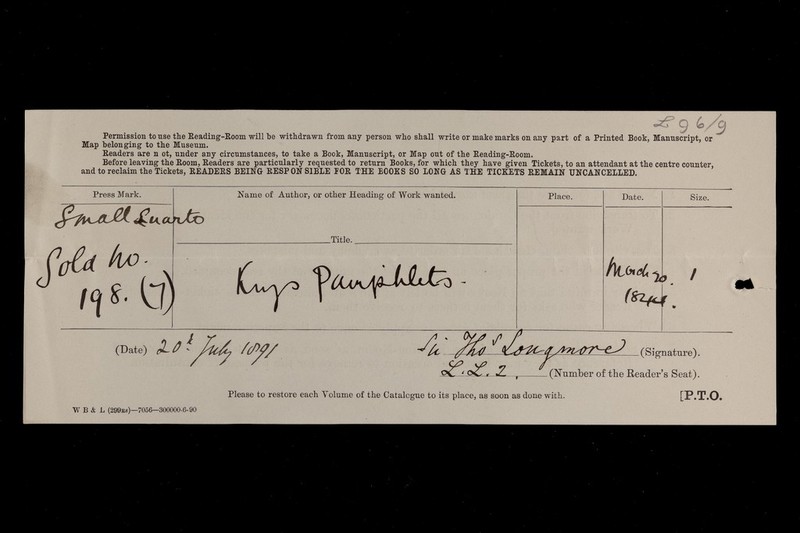 L 96/9
Permission to use the Reading-Room will be withdrawn from any person who shall write or make marks on any part of a Printed Book, Manuscript, or
Map belonging to the Museum.
Readers are n ot, under any circumstances, to take a Book, Manuscript, or Map out of the Reading-Room.
Before leaving the Room, Readers are particularly requested to return Books, for which they have given Tickets, to an attendant at the centre counter,
and to reclaim the Tickets, READERS BEING RESPONSIBLE FOR THE BOOKS SO LONG AS THE TICKETS REMAIN UNCANCELLED.
Press Mark. Name of Author, or other Heading of Work wanted. Place. Date. Size.
Small Quarto
Title.
No.
198. (7) Kings Pamphlets. March 20. 1
(Date) 20th July 1891 Sir Thos Longmore (Signature).
L.L. 2. (Number of the Reader's Seat).
Please to restore each Volume of the Catalogue to its place, as soon as done with. [P.T.O.
W B & L (299BS)—7056—300000-6-90